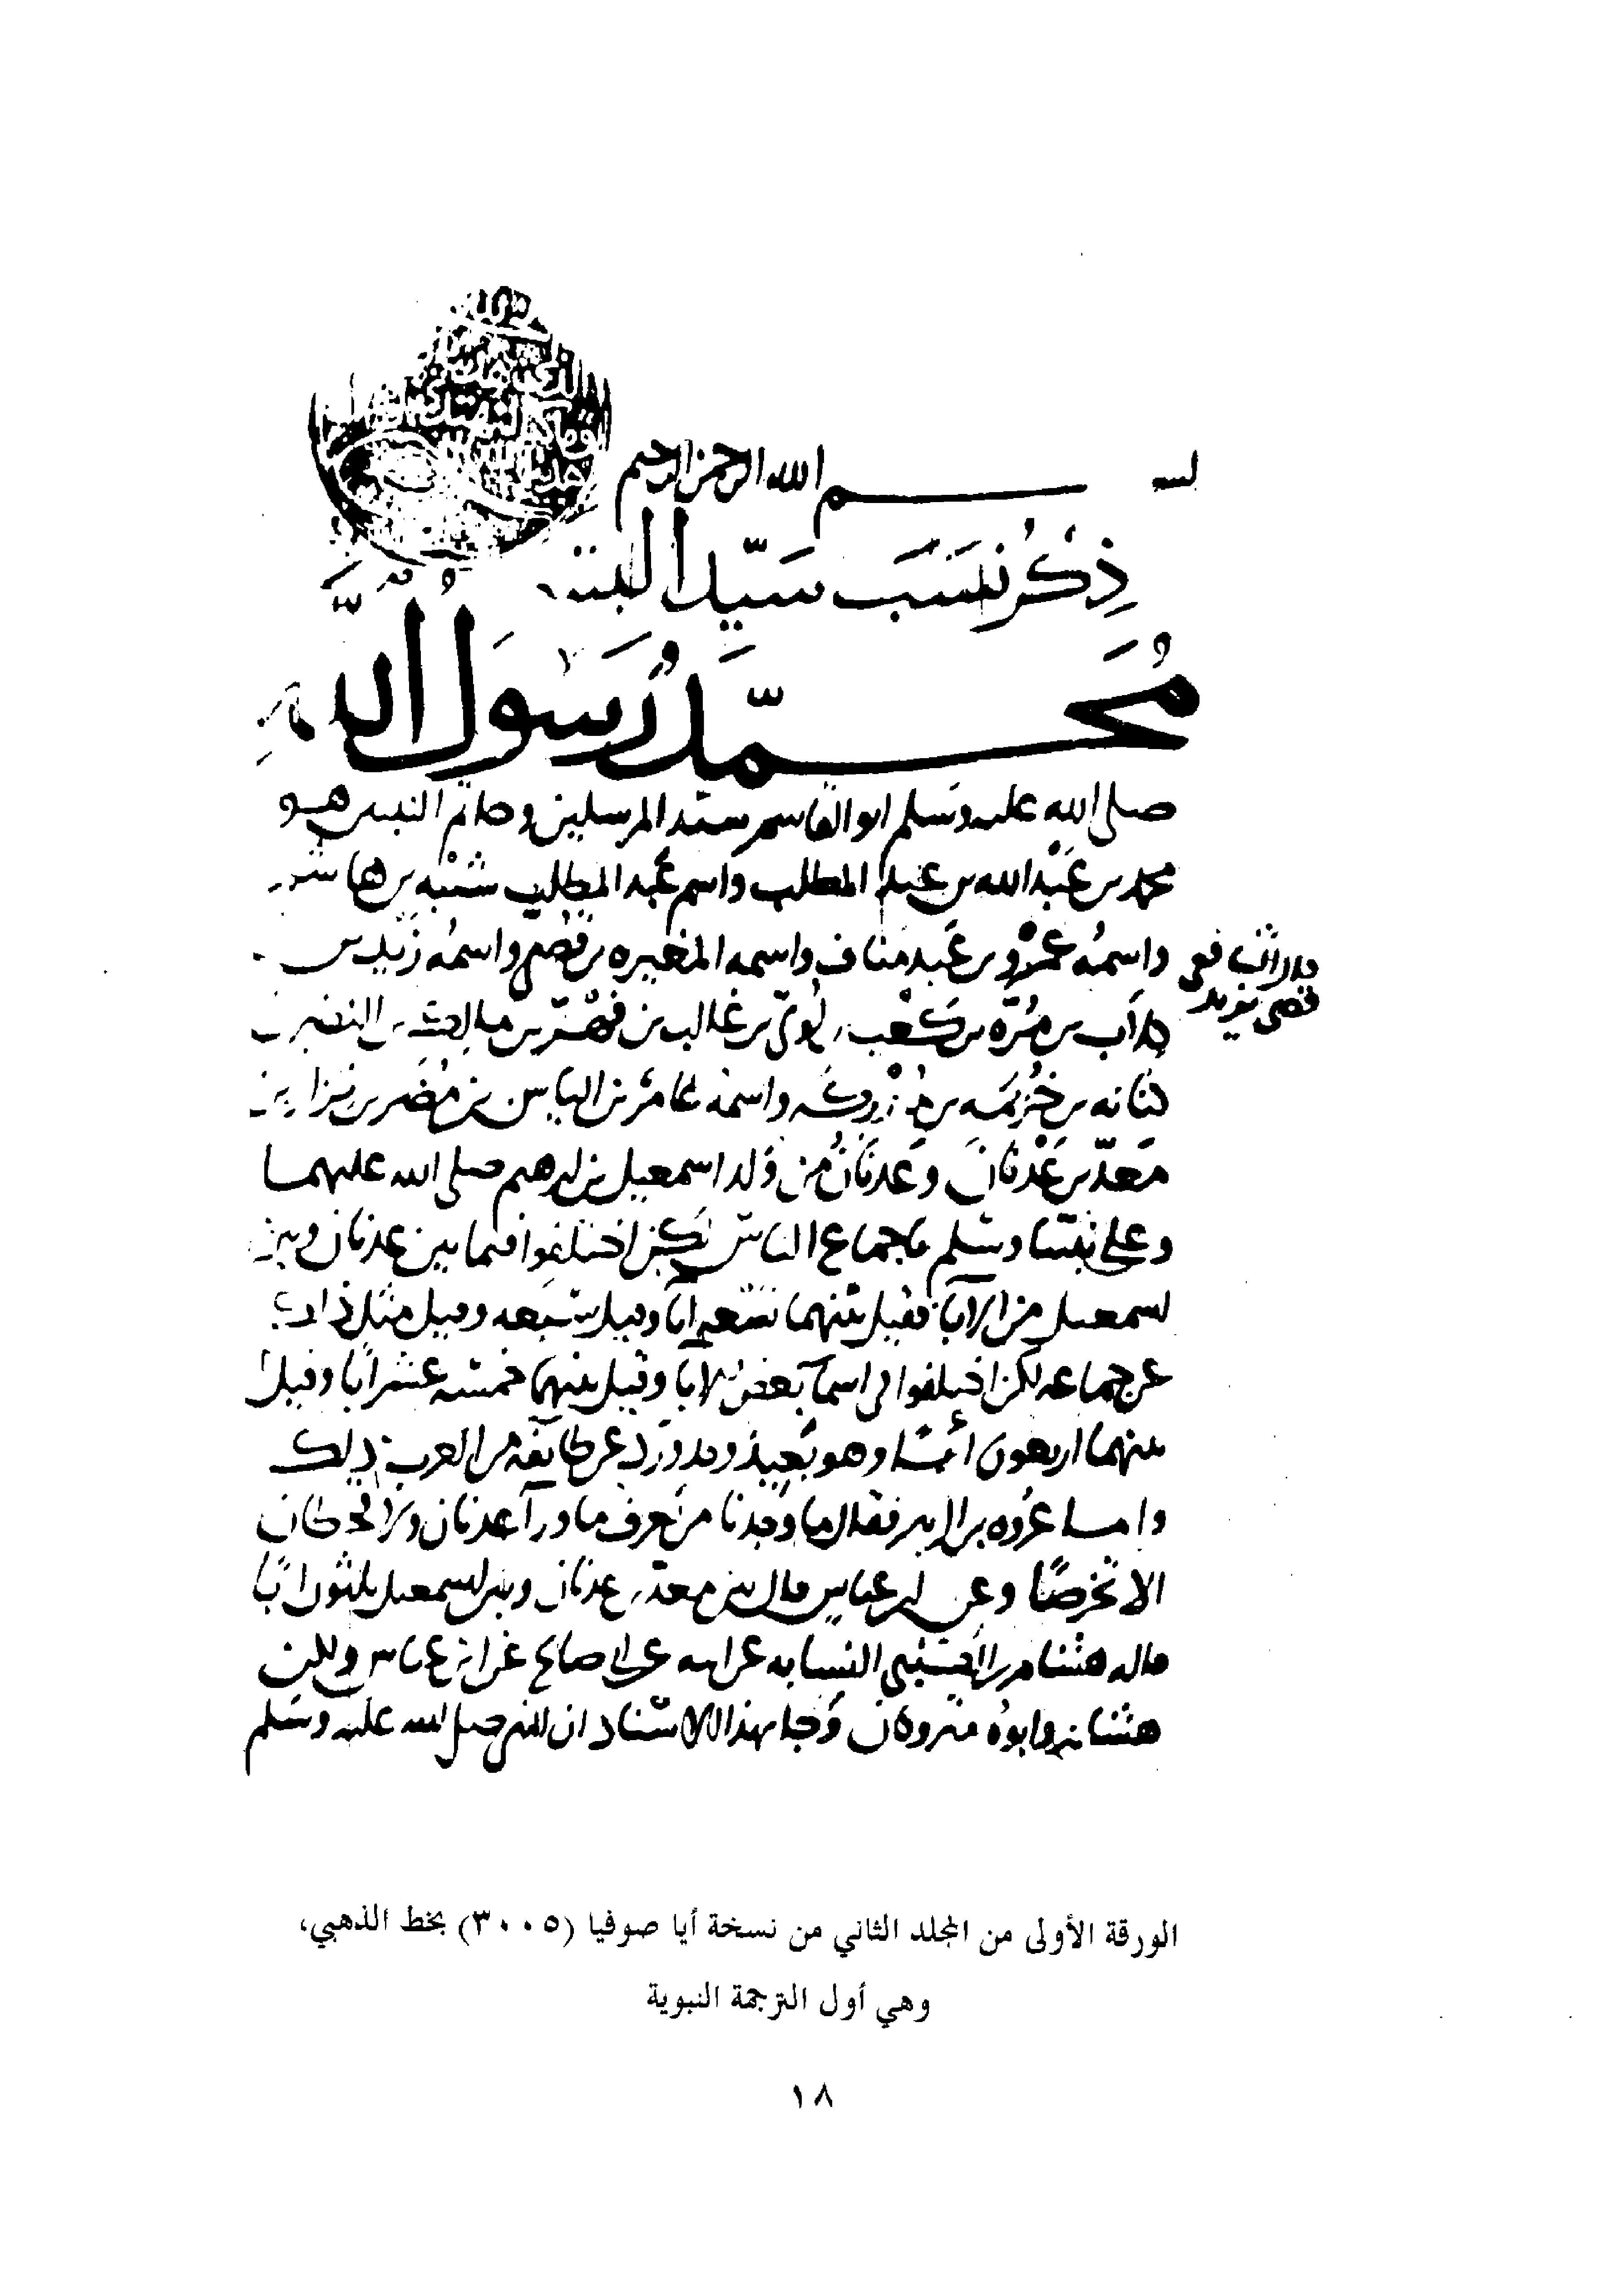 بسم الله الرحمن الرحيم
ذِكر نَسَب سَيّد البشر
مُحَمَّد رَسُول الله
صلى الله عليه وسلم ابو القاسم سيد المرسلين وخاتم النبيين هو
محمد بن عَبْد الله بن عبد المطلب واسم عبد المطلب شَيْبَه بن هاشم
واسمُه عَمْرو بن عَبد مَناف واسمه المغيره بن قُصَي واسمُه زَيد بن
قال الشافعي
قصي يزيد
كلاب بن مُرّه بن كَعْب بن لُؤيّ بن غالب بن فهْر بن مالك بن النضر بن
كنانه بن خُزيمَه بن مُدْركه واسمه عامر بن الياس بن مُضَر بن نزار بن
مَعَدّ بن عَدْنان وعَدنانُ من وَلد اسمعيل بن ابرهيم صلى الله عليهما
وعلى نبينا وسلم باجماع الناس لكن اختلفوا فيما بين عدنان وبين
اسمعيل من الآبا فقيل بينهما تسعه آبا وقيل سَبعه وقيل مثل ذلك
عن جماعه لكن اختلفوا في اسمآ بَعض الابا وقيل بينهما خمسه عشر ابا وقيل
بينهما اربعون ابًا وهو بَعيد وقد وَرَد عن طايفه من العرب ذلك
واما عُروه بن الزبير فقال ما وَجدنا من يَعرف ما ورآ عدنان ولا قحطان
الا تخرصًا وعن ابن عباس قال بين معدّ بن عدنان وبين اسمعيل ثلثون ابًا
قاله هشام بن الكلبي النسابه عن ابيه عن ابي صالح عن ابن عباس ولكن
هشام وابوُه متروكان وجا بهذا الاسناد ان النبي صلى الله عليه وسلم
الورقة الأولى من المجلد الثاني من نسخة أيا صوفيا (٣٠٠٥) بخط الذهبي،
وهي أول الترجمة النبوية
١٨